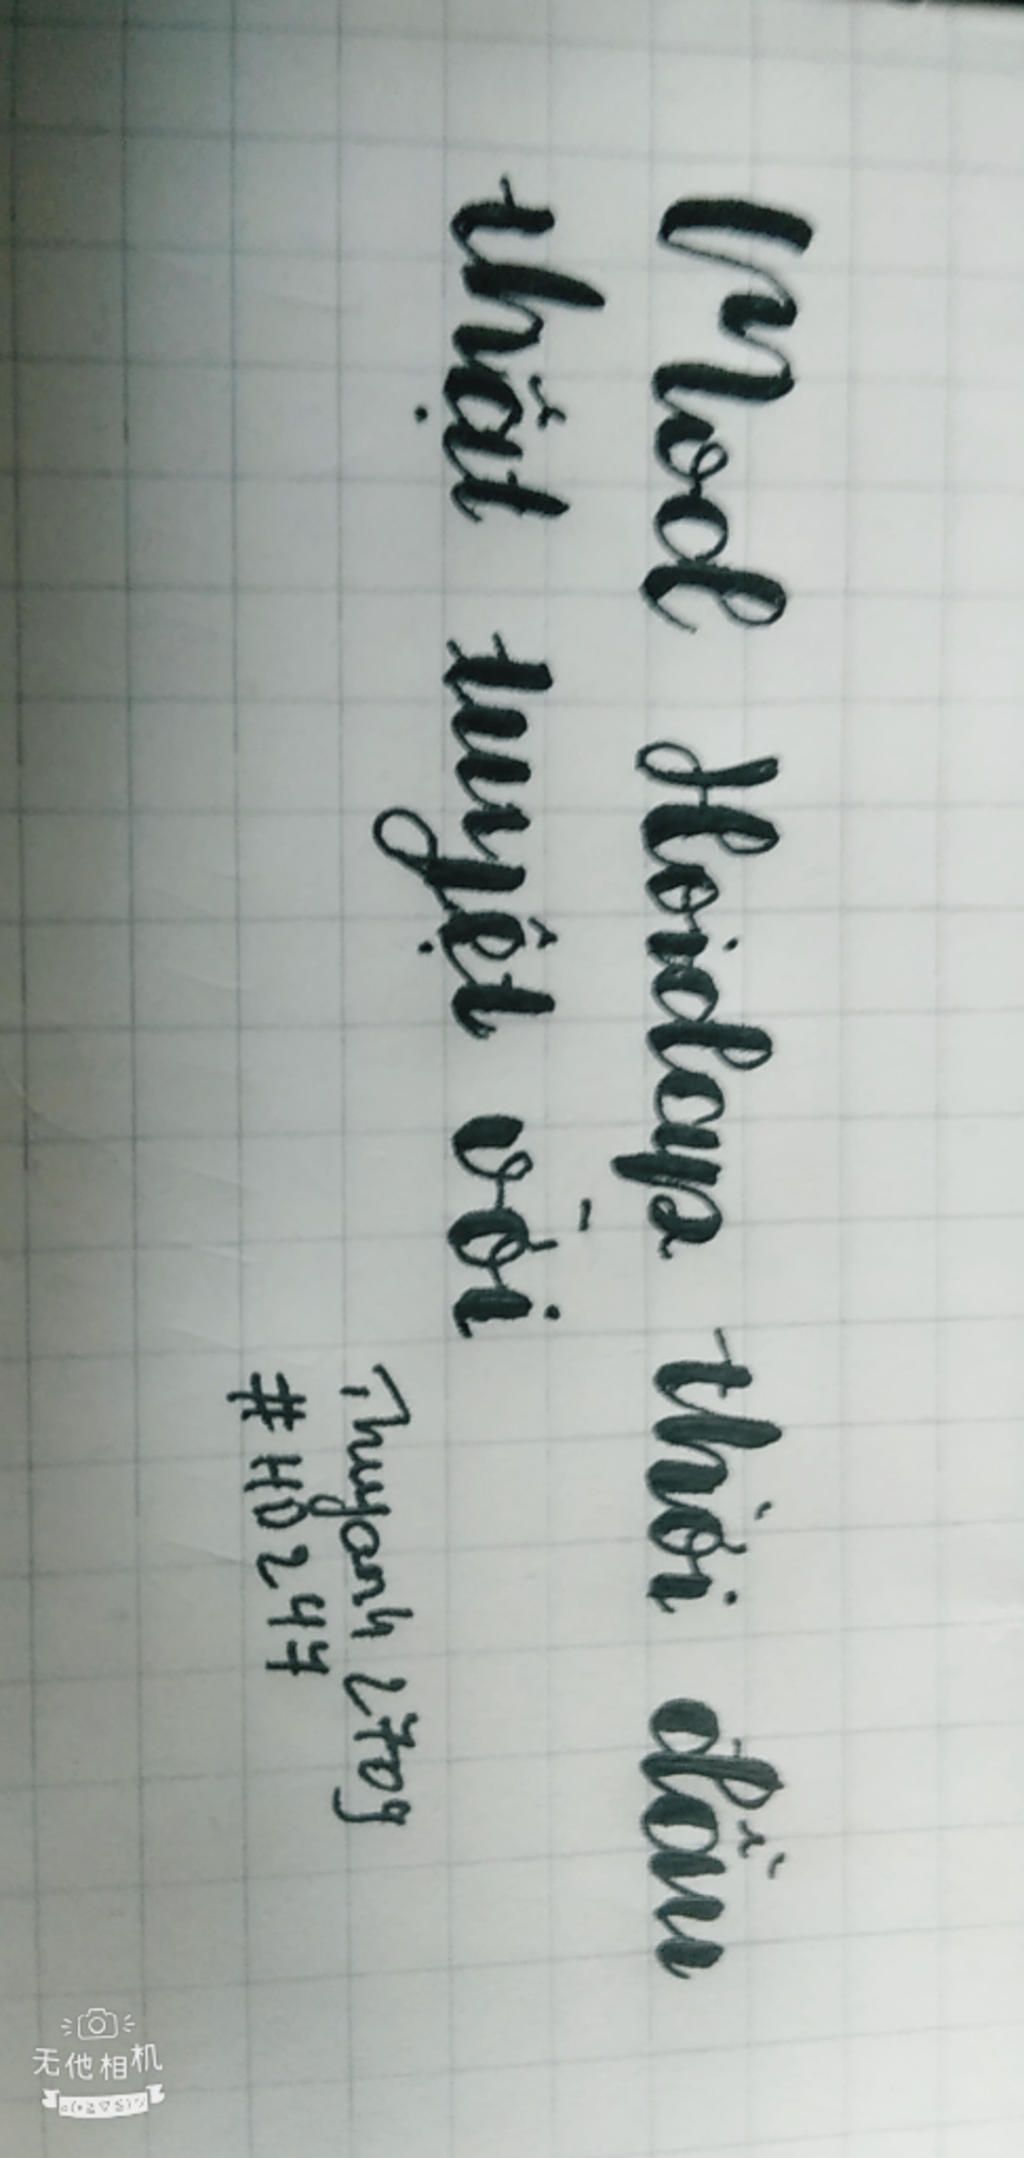 Mool Hoidays thời đầu
thật tuyệt vời
Thuyanh 2709
#HD247
无他相机